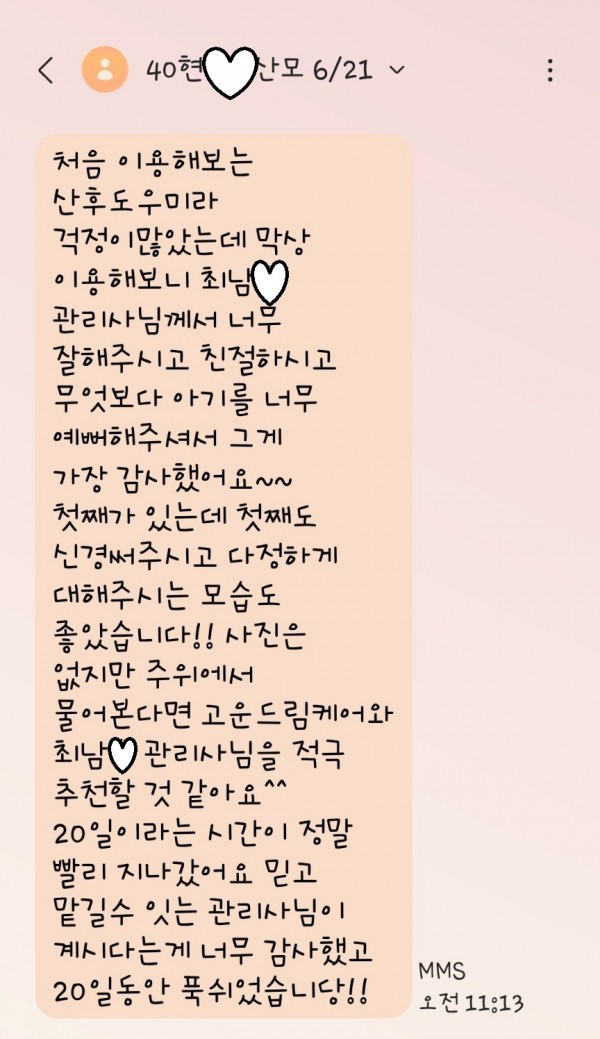 40현 산모 6/21
처음 이용해보는
산후도우미라
걱정이많았는데 막상
이용해보니 최남
관리사님께서 너무
잘해주시고 친절하시고
무엇보다 아기를 너무
예뻐해주셔서 그게
가장 감사했어요~~
첫째가 있는데 첫째도
신경써주시고 다정하게
대해주시는 모습도
좋았습니다!! 사진은
없지만 주위에서
물어본다면 고운드림케어와
최남 관리사님을 적극
추천할 것 같아요^^
20일이라는 시간이 정말
빨리 지나갔어요 믿고
맡길수 잇는 관리사님이
계시다는게 너무 감사했고
20일동안 푹쉬었습니당!!
MMS
오전 11:13